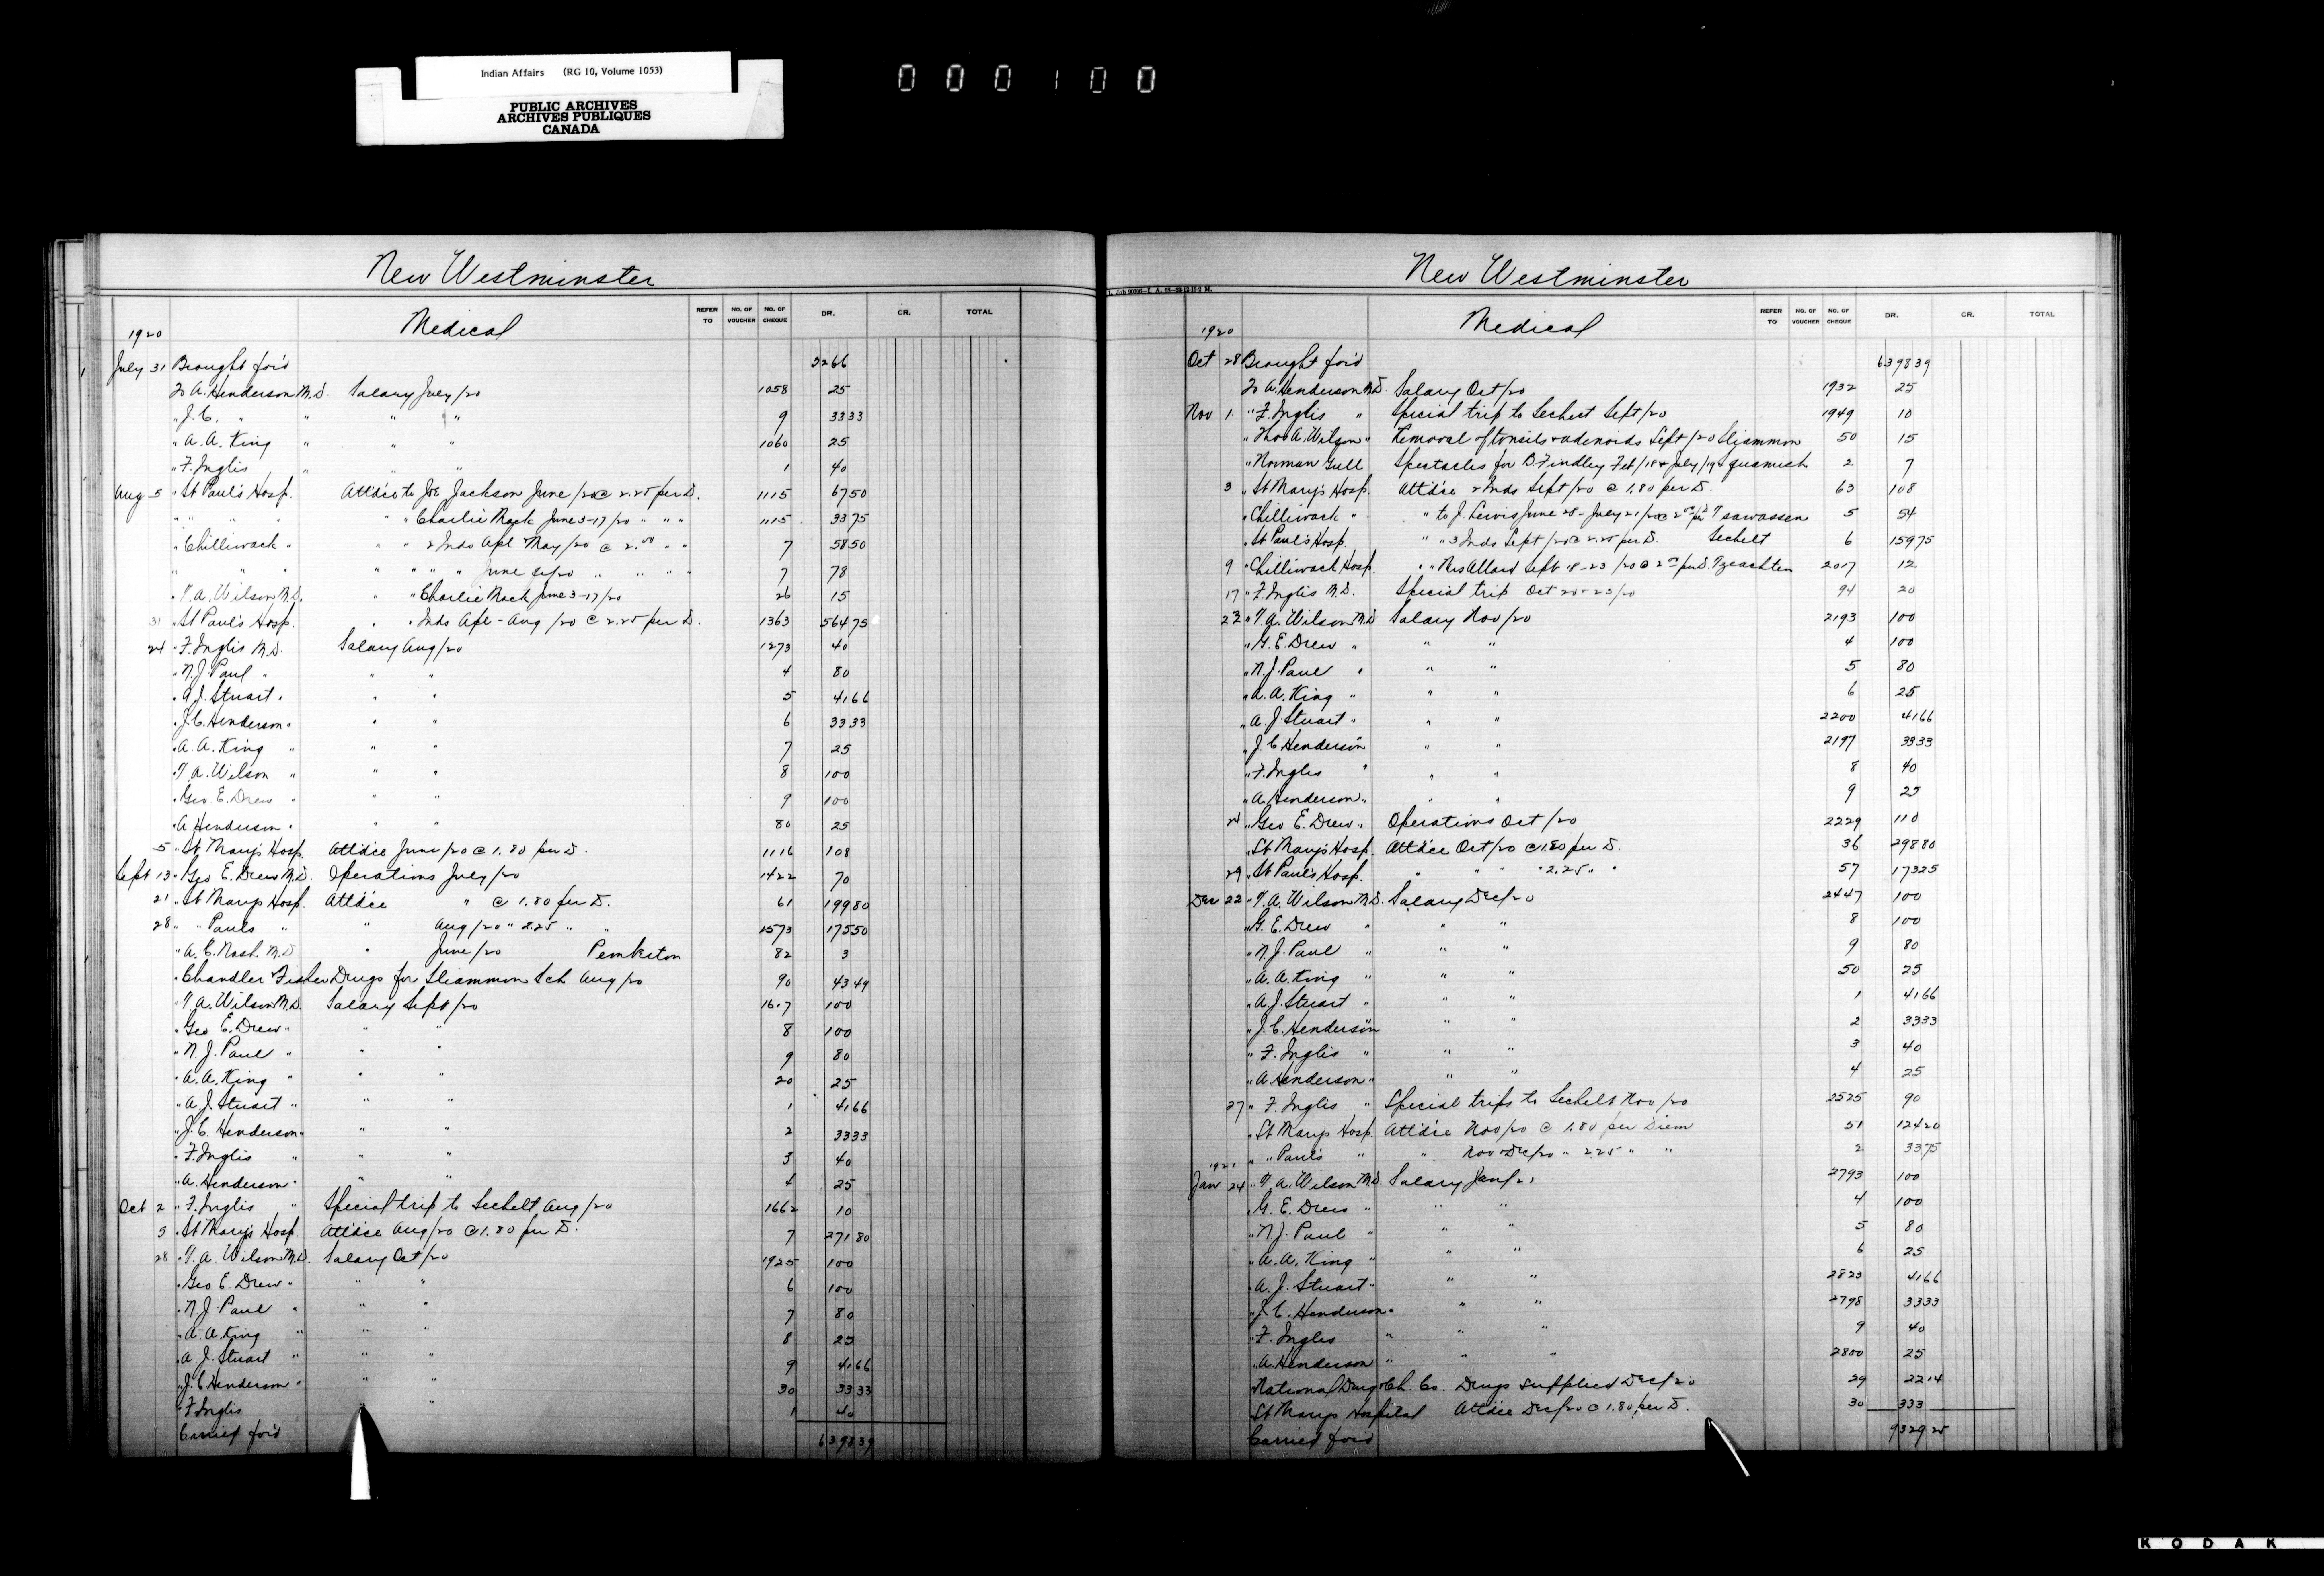 Indian Affairs (RG 10, Volume 1053)
PUBLIC ARCHIVES
ARCHIVES PUBLIQUES
CANADA
000100
New Westminster
1920 Medical REFER TO NO. OF VOUCHER NO. OF CHEQUE DR. CR. TOTAL
1 July 31 Brought for'd 2266
To A. Henderson M.D. Salary July/20 1058 25
" J.C. " " " " 9 3333
" A.A. King " " " 1060 25
" F. Inglis " " " 1 40
Aug 5 " St Paul's Hosp. Attd'ce to Joe Jackson June/20 @ 2.25 per D. 1115 6750
" " " " " Charlie Mack June 3-17/20 " " " 1115 3375
" Chilliwack " " " 2 Inds Apl May/20 @ 2.00 " " 7 5850
" " " " " " " June /20 " " " " 7 78
" T.A. Wilson M.D. " " Charlie Mack June 3-17/20 26 15
31 " St Paul's Hosp. " " Inds Apl - Aug/20 @ 2.25 per D. 1363 56475
24 " F. Inglis M.D. Salary Aug/20 1273 40
" N.J. Paul " " " 4 80
" A.J. Stuart " " " 5 4166
" J.C. Henderson " " " 6 3333
" A.A. King " " " 7 25
" T.A. Wilson " " " 8 100
" Geo. E. Drew " " " 9 100
" A. Henderson " " " 80 25
5 " St Mary's Hosp. Attd'ce June/20 @ 1.80 per D. 1116 108
Sept 13 " Geo E. Drew M.D. Operations July/20 1422 70
21 " St Marys Hosp. Attd'ce " @ 1.80 per D. 61 19980
28 " " Pauls " " Aug/20 " 2.25 " " 1573 17550
" A.C. Nash M.D. " June/20 Pemberton 82 3
" Chandler Fisher Drugs for Sliammon Sch Aug/20 90 4349
" T.A. Wilson M.D. Salary Sept/20 1617 100
" Geo E. Drew " " " 8 100
" N.J. Paul " " " 9 80
" A.A. King " " " 20 25
" A.J. Stuart " " " 1 4166
" J.C. Henderson " " " 2 3333
" F. Inglis " " " 3 40
" A. Henderson " " " 4 25
Oct 2 " F. Inglis " Special trip to Sechelt Aug/20 1662 10
5 " St Mary's Hosp. Attd'ce Aug/20 @ 1.80 per D. 7 27180
28 " T.A. Wilson M.D. Salary Oct/20 1925 100
" Geo E. Drew " " " 6 100
" N.J. Paul " " " 7 80
" A.A. King " " " 8 25
" A.J. Stuart " " " 9 4166
" J.C. Henderson " " " 30 3333
" F. Inglis " " 1 40
Carried for'd 639839
New Westminster
1920 Medical REFER TO NO. OF VOUCHER NO. OF CHEQUE DR. CR. TOTAL
Oct 28 Brought for'd 639839
To A. Henderson M.D. Salary Oct/20 1932 25
Nov 1 " F. Inglis " Special trip to Sechelt Sept/20 1949 10
" Thos A. Wilson " Removal of tonsils & adenoids Sept/20 Sliammon 50 15
" Norman Gull Spectacles for B. Findley Feb/18 & July/19 Squamish 2 7
3 " St Mary's Hosp. Attd'ce 2 Inds Sept/20 @ 1.80 per D. 63 108
" Chilliwack " " to J. Lewis June 28 - July 21/20 @ 2.00 p D Tsawassen 5 54
" St Paul's Hosp. " " 3 Inds Sept/20 @ 2.25 per D. Sechelt 6 15975
9 " Chilliwack Hosp. " " Mrs Allard Sept 18-23/20 @ 2.00 per D. Tzeachten 2017 12
17 " F. Inglis M.D. Special trip Oct 20-23/20 94 20
22 " T.A. Wilson M.D. Salary Nov/20 2193 100
" G.E. Drew " " " 4 100
" N.J. Paul " " " 5 80
" A.A. King " " " 6 25
" A.J. Stuart " " " 2200 4166
" J.C. Henderson " " 2197 3333
" F. Inglis " " " 8 40
" A. Henderson " " " 9 25
24 " Geo E. Drew " Operations Oct/20 2229 110
" St Mary's Hosp. Attd'ce Oct/20 @ 1.80 per D. 36 29880
29 " St Paul's Hosp. " " " 2.25 " " 57 17325
Dec 22 " T.A. Wilson M.D. Salary Dec/20 2447 100
" G.E. Drew " " " 8 100
" N.J. Paul " " " 9 80
" A.A. King " " " 50 25
" A.J. Stuart " " " 1 4166
" J.C. Henderson " " 2 3333
" F. Inglis " " " 3 40
" A. Henderson " " " 4 25
27 " F. Inglis " Special trips to Sechelt Nov/20 2525 90
" St Marys Hosp. Attd'ce Nov/20 @ 1.80 per Diem 51 12420
" " Paul's " " Nov-Dec/20 " 2.25 " " 2 3375
1921
Jan 24 " T.A. Wilson M.D. Salary Jan/21 2793 100
G.E. Drew " " " 4 100
" N.J. Paul " " " 5 80
" A.A. King " " " 6 25
" A.J. Stuart " " " 2823 4166
" J.C. Henderson " " " 2798 3333
" F. Inglis " " " 9 40
" A. Henderson " " " 2800 25
National Drug & Ch. Co. Drugs supplied Dec/20 29 2214
St Marys Hospital Attd'ce Dec/20 @ 1.80 per D. 30 333
Carried for'd 932925
KODAK